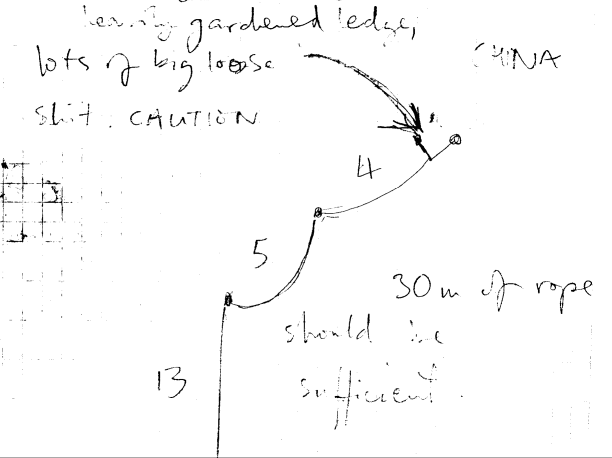 gardened ledge,
lots of big loose
shit. CAUTION
CHINA
4
5
30m of rope
should be
sufficient.
13